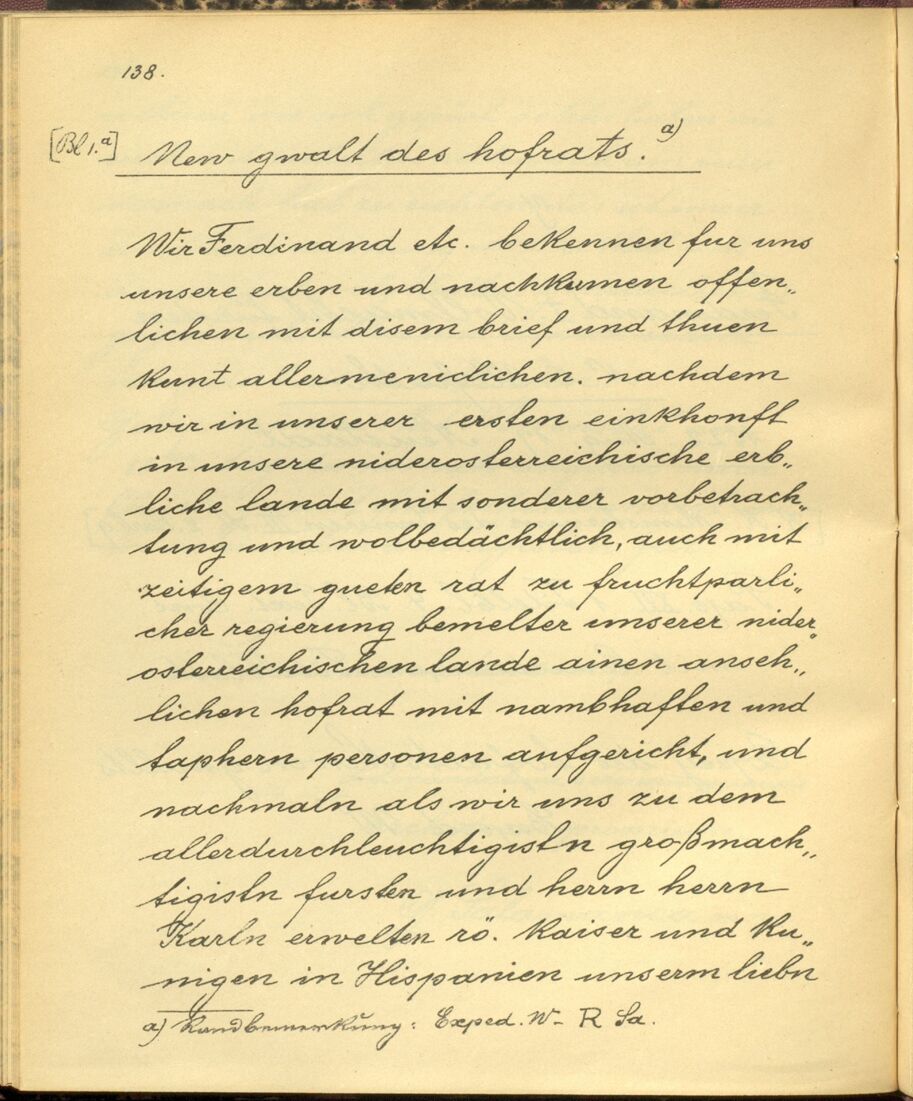 138.
[Bl 1.a]
New gwalt des hofrats. a)
Wir Ferdinand etc. bekennen fur uns
unsere erben und nachkumen offen„
lichen mit disem brief und thuen
kunt allermeniclichen. nachdem
wir in unserer ersten einkhonft
in unsere niderosterreichische erb„
liche lande mit sonderer vorbetrach„
tung und wolbedächtlich, auch mit
zeitigem gueten rat zu fruchtparli„
cher regierung bemelter unserer nider„
osterreichischen lande ainen anseh„
lichen hofrat mit nambhaften und
taphern personen aufgericht, und
nachmaln als wir uns zu dem
allerdurchleuchtigistn großmach„
tigistn fursten und herrn herrn
Karln erwelten rö. Kaiser und Ku„
nigen in Hispanien unserm liebn
a) Randbemerkung: Exped. W- R Sa.